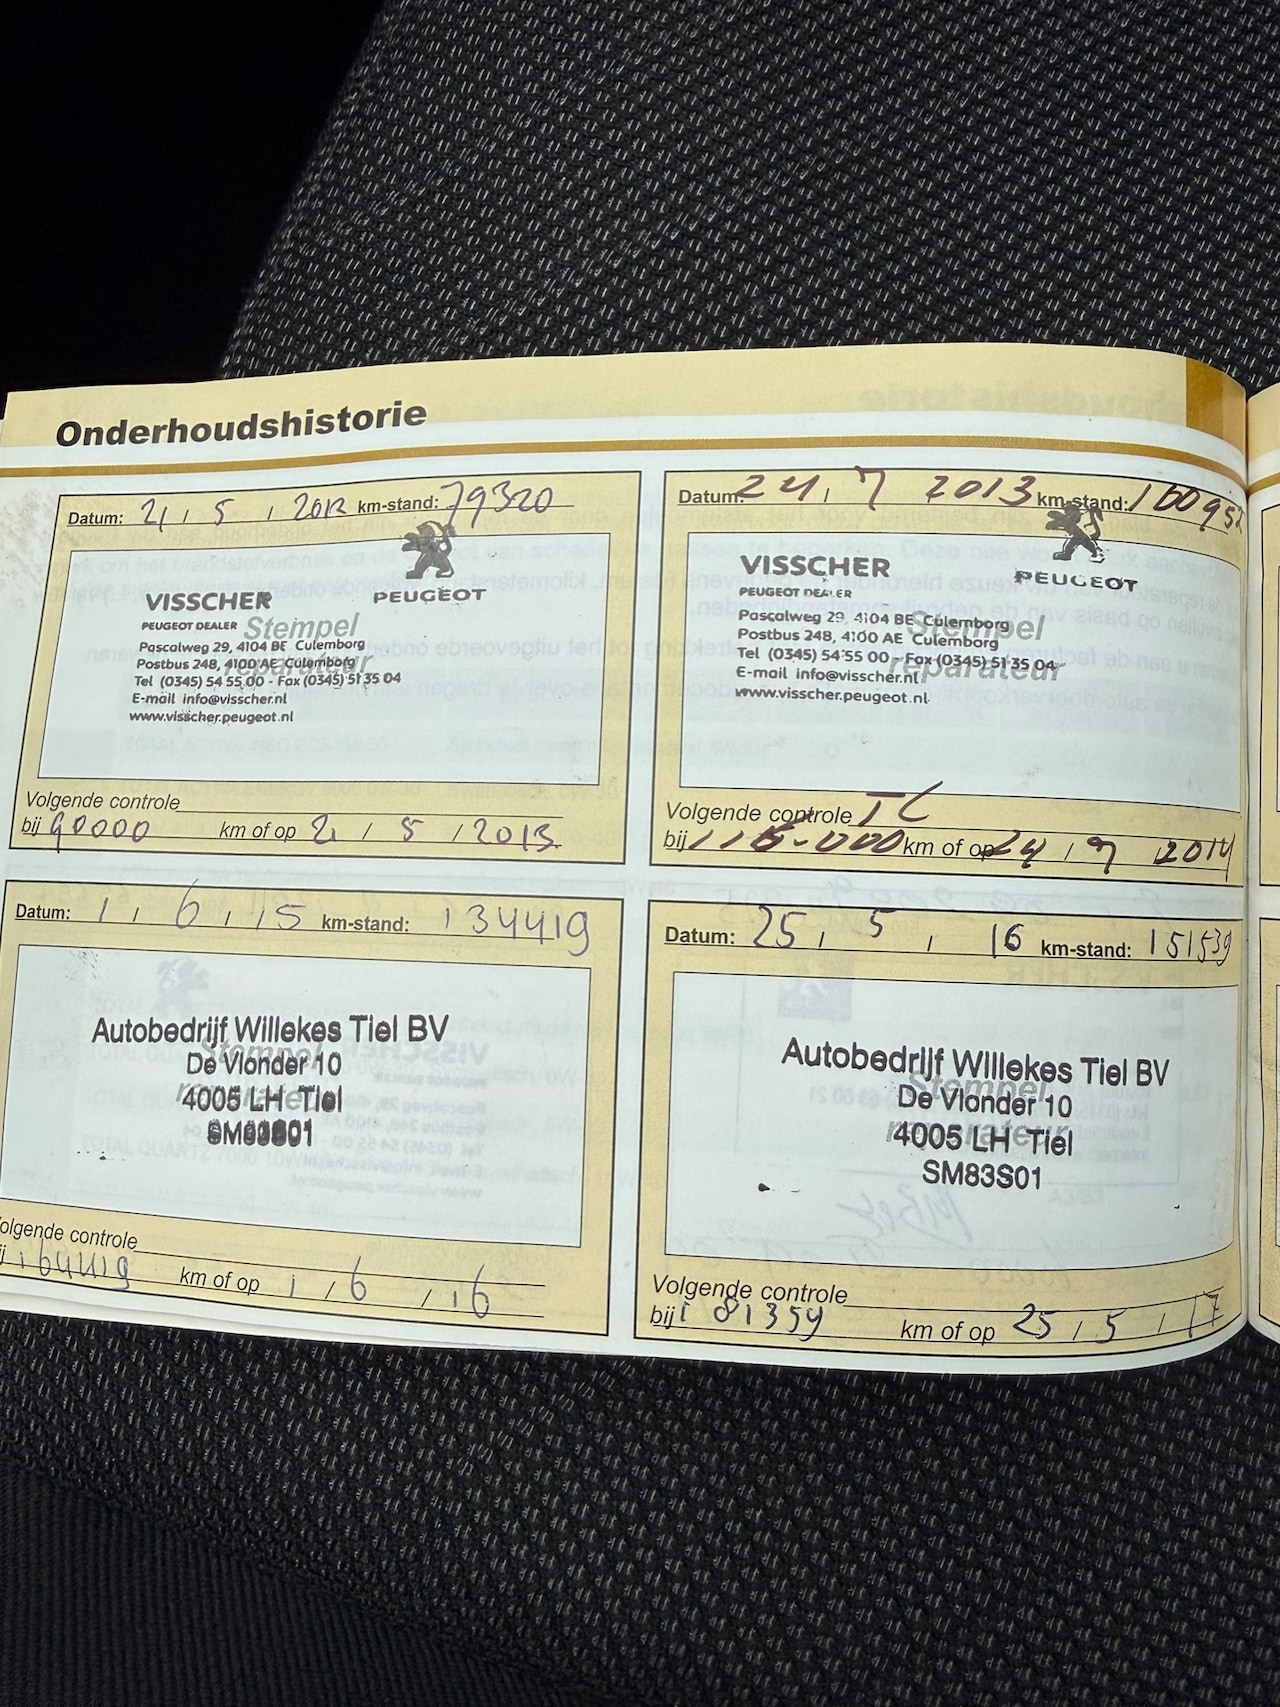 Onderhoudshistorie
Datum: 21 / 5 / 2012 km-stand: 79320
PEUGEOT
VISSCHER
PEUGEOT DEALER
Stempel
Pascalweg 29, 4104 BE Culemborg
Postbus 248, 4100 AE Culemborg
reparateur
Tel (0345) 54 55 00 - Fax (0345) 51 35 04
E-mail info@visscher.nl
www.visscher.peugeot.nl
Volgende controle
bij 90000 km of op 21 / 5 / 2013
Datum: 24 / 7 2013 km-stand:
PEUGEOT
VISSCHER
PEUGEOT DEALER
Pascalweg 29, 4104 BE Culemborg
Stempel
Postbus 248, 4100 AE Culemborg
Tel (0345) 54 55 00 - Fax (0345) 51 35 04
reparateur
E-mail info@visscher.nl
www.visscher.peugeot.nl
Volgende controle
bij km of op 24 / 7 2014
Datum: 1 / 6 / 15 km-stand: 134419
Autobedrijf Willekes Tiel BV
Stempel
De Vlonder 10
reparateur
4005 LH Tiel
Volgende controle
km of op 1 / 6 / 16
Datum: 25 / 5 / 16 km-stand: 151539
Autobedrijf Willekes Tiel BV
Stempel
De Vlonder 10
reparateur
4005 LH Tiel
SM83S01
Volgende controle
bij 181359 km of op 25 / 5 / 17